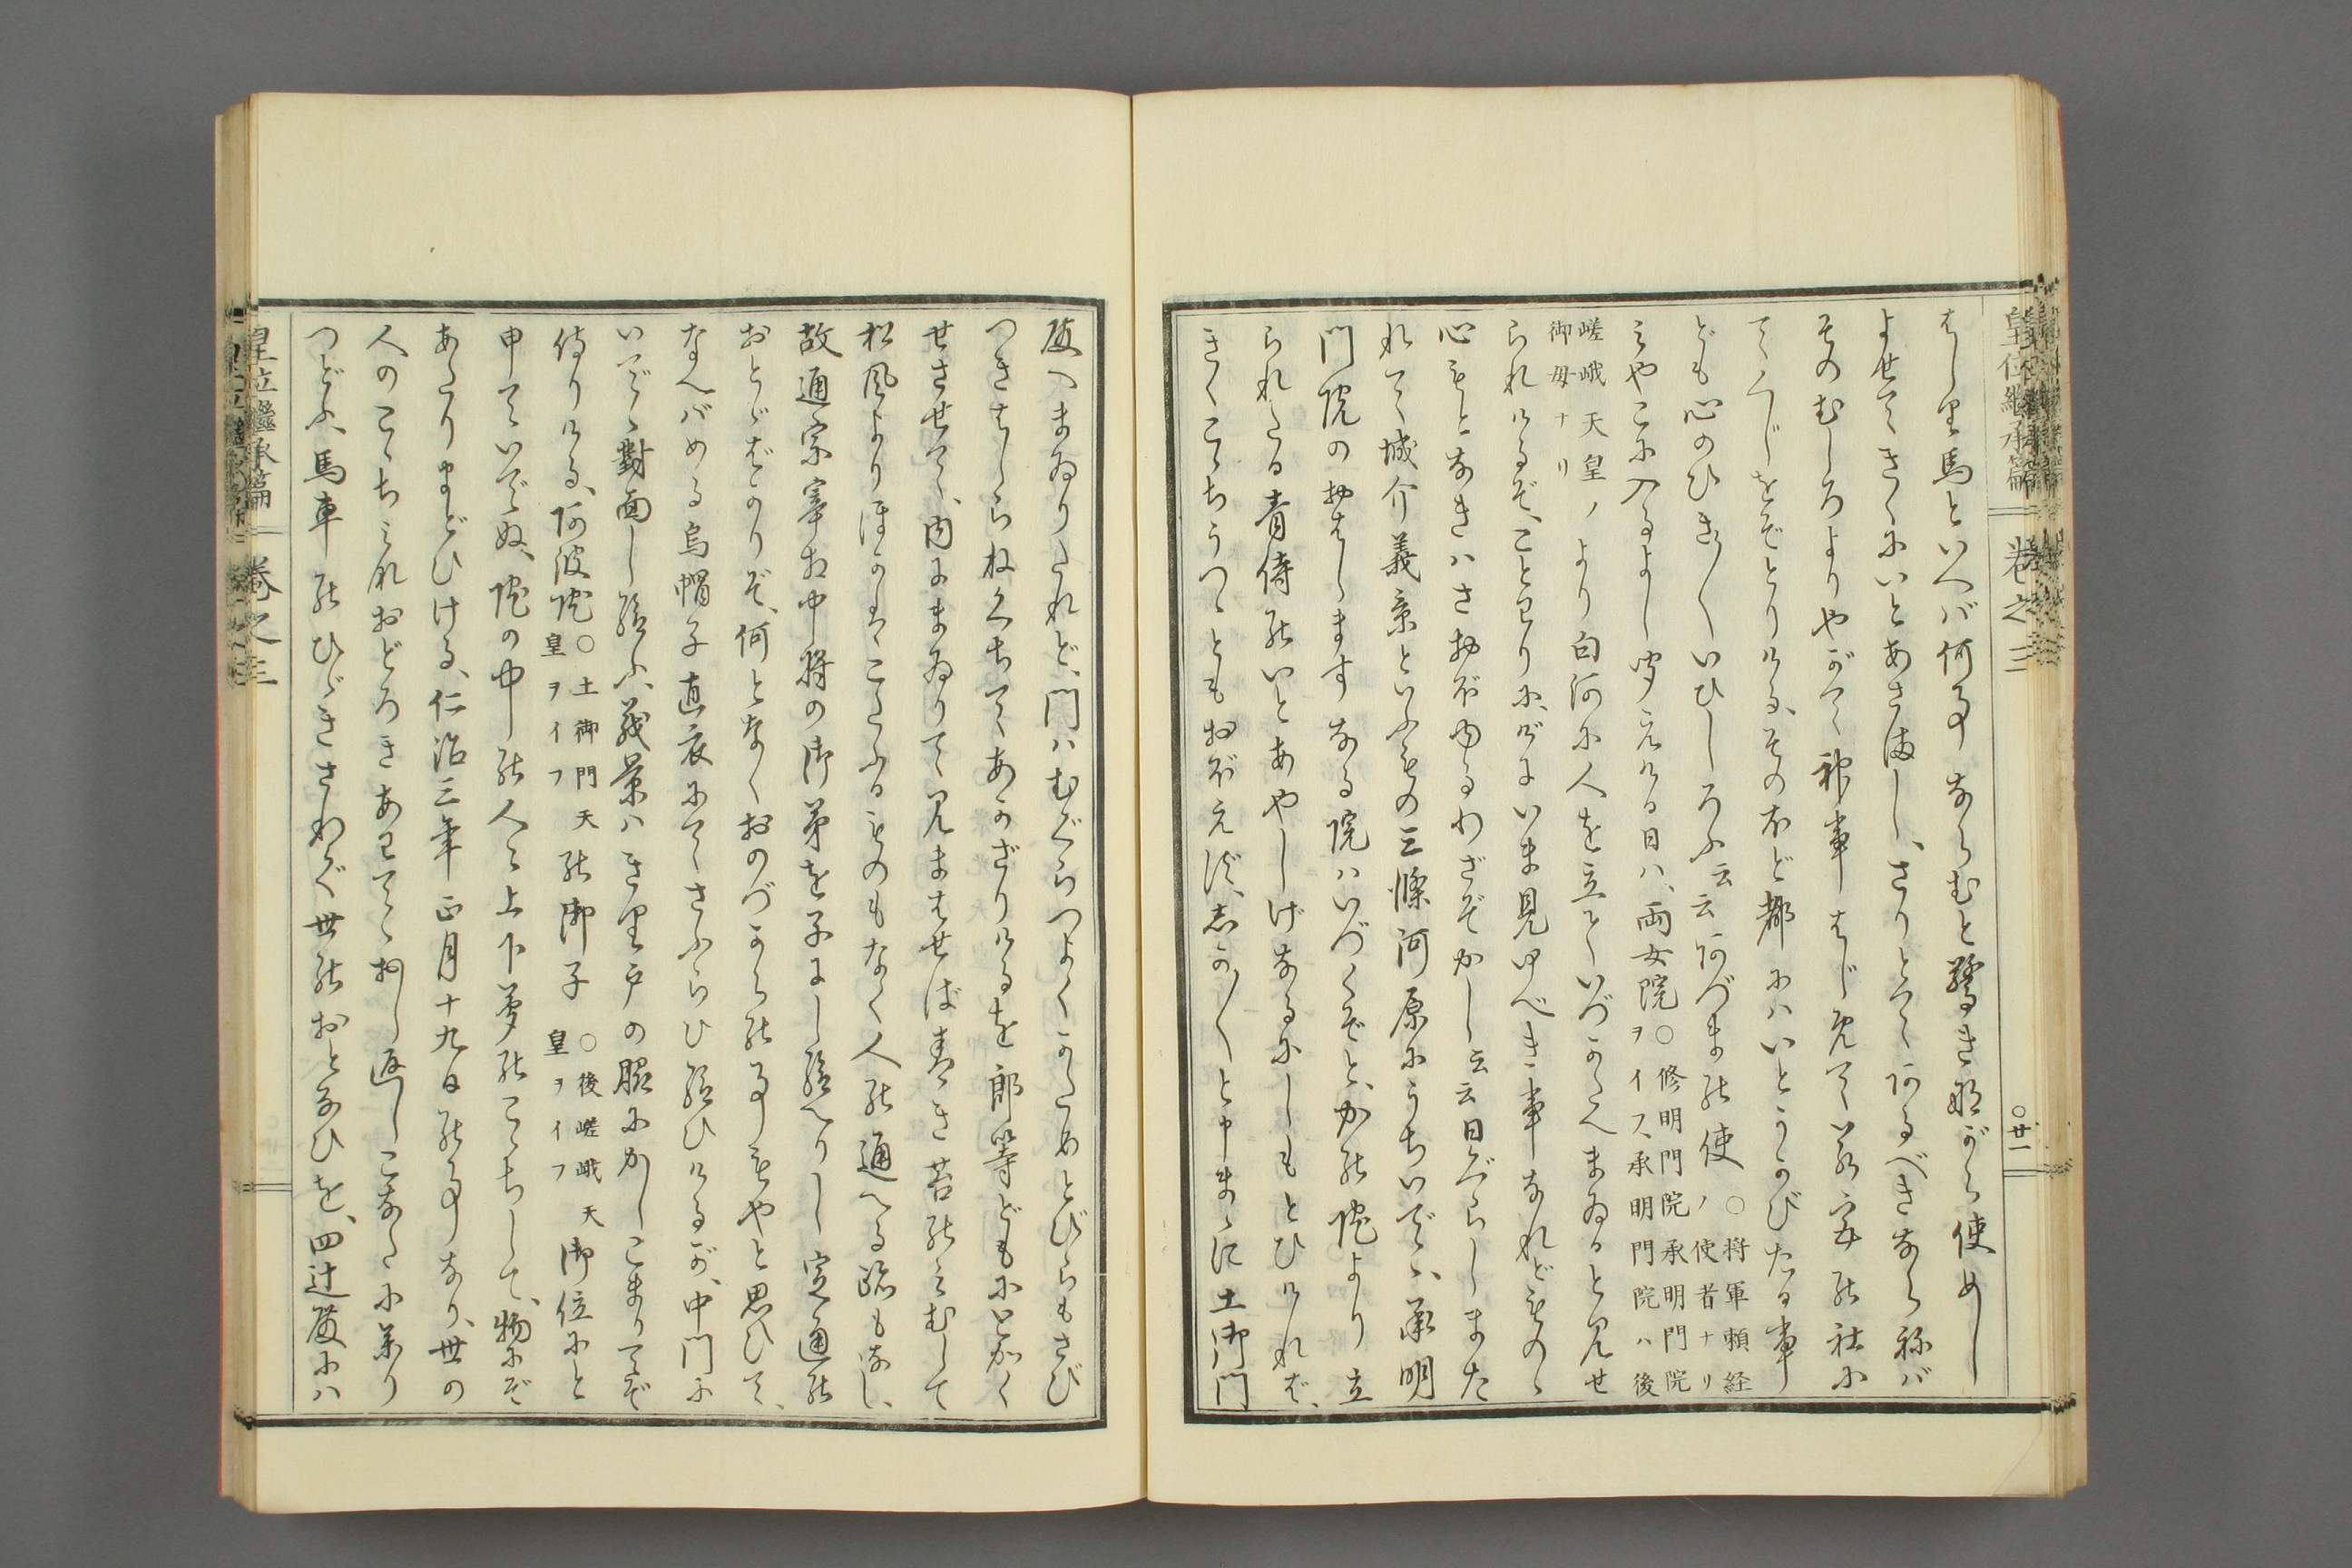 皇位継承篇 巻之三 ○廿一
はしり馬といへバ何事ならむと驚きながら使めし
よせてきくにいとあさましし、さりとてあるべきならねバ
そのむしろよりやがて神事はじめて若宮の社に
てくじをぞとりける、そのほど都にハいとうかびたる事
ども心のひき〳〵いひしろふ云云あづまの使○将軍頼経ノ使者ナリ
みやこに入るよし聞えける日ハ、両女院○修明門院承明門院ヲイフ、承明門院ハ後
嵯峨天皇ノ御母ナリより白河に人を立ていづかたへまゐると見せ
られけるぞ、ことわりに、げにいま見ゆべき事なれどものゝ
心もとなきハさおぼゆるわざぞかし云云日ぐらしまた
れて城介義景といふもの三條河原にうちいでゝ、承明
門院のおはしますなる院ハいづくぞと、かの院より立
られたる青侍のいとあやしげなるにしもとひければ、
きくこゝちうつゝともおぼえず、志か〳〵と申まゝに土御門
殿へまゐりたれど、門ハむぐらつよくかためとびらもさび
つきはしらねくちてあかざりけるを郎等どもにとかく
せさせて、内にまゐりて見まはせば青き苔のみむして
松風よりほかはこたふるものもなく人の通へる跡もなし、
故通宗宰相中将の御弟を子にし給へりし定通の
おとゞばかりぞ、何となくおのづからの事もやと思ひて、
なへばめる烏帽子直衣にてさふらひ給ひけるが、中門に
いでゝ對面し給ふ、義景ハきり戸の脇にかしこまりてぞ
侍りける、阿波院○土御門天皇ヲイフの御子○後嵯峨天皇ヲイフ御位にと
申ていでぬ、院の中の人々上下夢のこゝちして、物にぞ
あたりまどひける、仁治三年正月十九日の事なり、世の
人のこゝちみなおどろきあわてゝおし返しこなたに参り
つどふ、馬車のひゞきさわぐ世のおとなひを、四辻殿にハ
皇位継承篇 巻之三